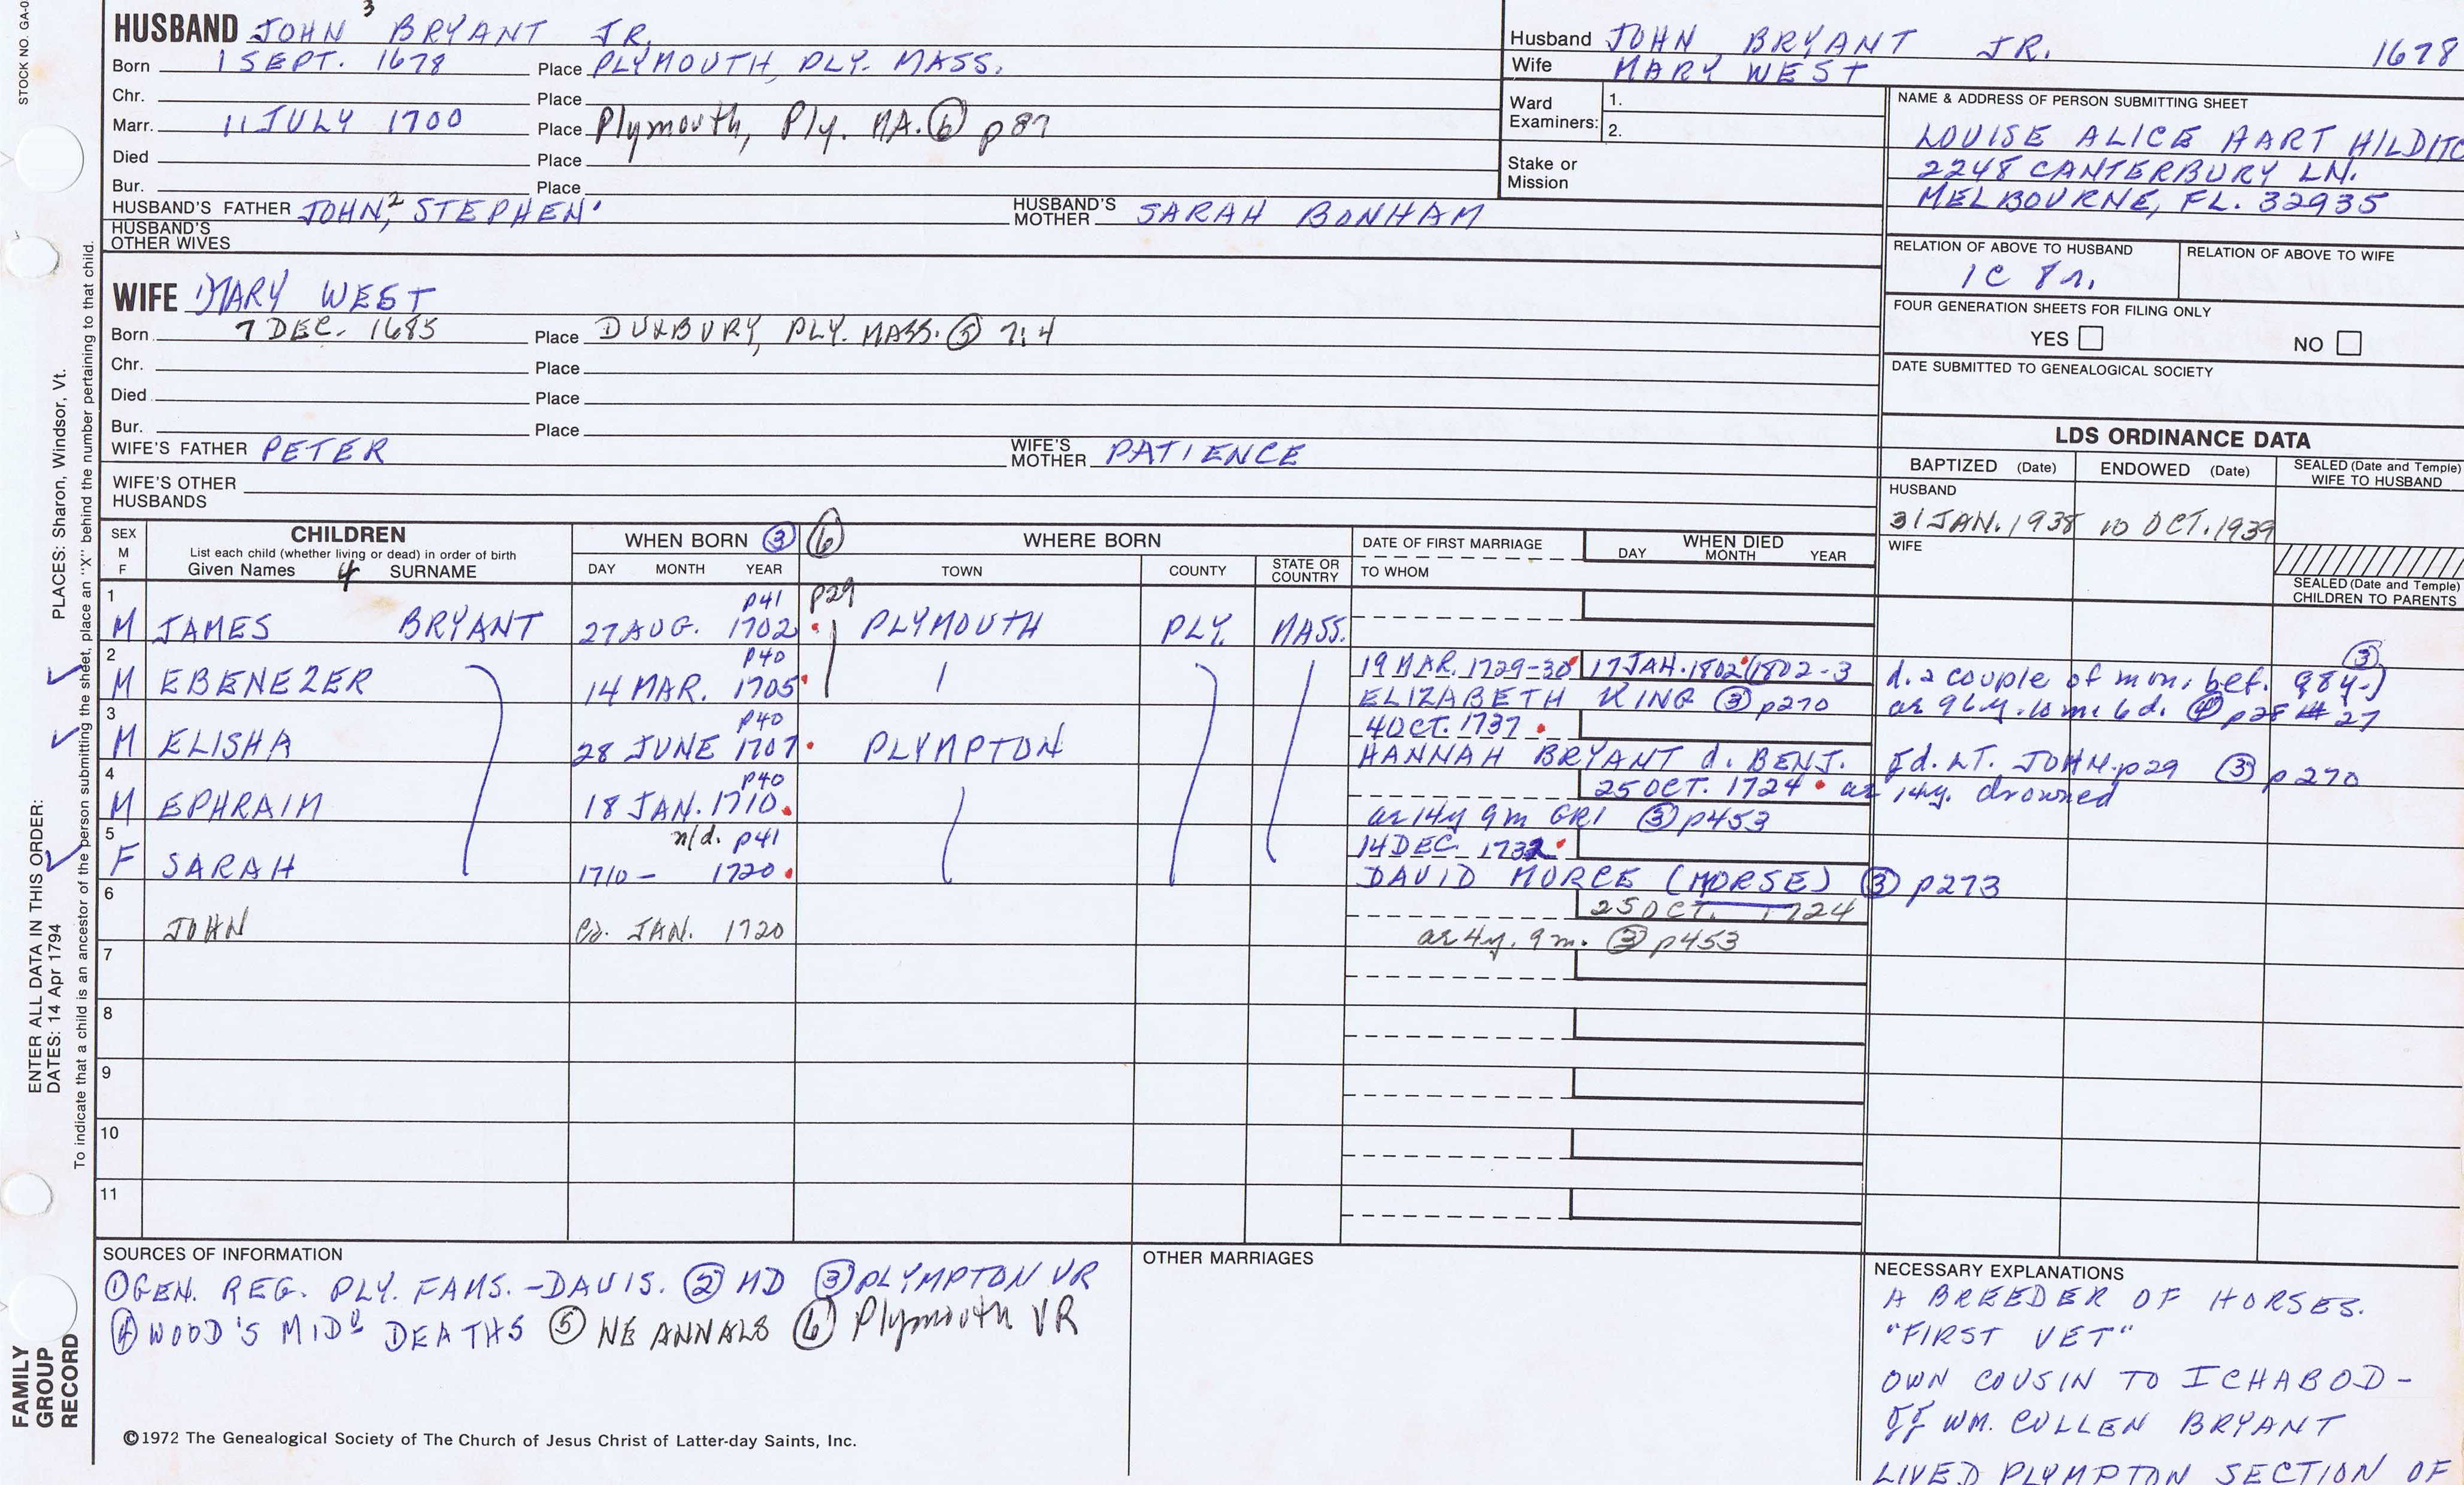 STOCK NO. GA-0
HUSBAND JOHN 3 BRYANT JR.
Born 1 SEPT. 1678 Place PLYMOUTH, PLY. MASS.
Chr. Place
Marr. 11 JULY 1700 Place Plymouth, Ply. MA. ⑥ p87
Died Place
Bur. Place
HUSBAND'S FATHER JOHN,2 STEPHEN' HUSBAND'S MOTHER SARAH BONHAM
HUSBAND'S OTHER WIVES
WIFE MARY WEST
Born 7 DEC. 1685 Place DUXBURY, PLY. MASS. ⑤ 7:4
Chr. Place
Died Place
Bur. Place
WIFE'S FATHER PETER WIFE'S MOTHER PATIENCE
WIFE'S OTHER HUSBANDS
Husband JOHN BRYANT JR. 1678
Wife MARY WEST
Ward Examiners: 1.
2.
Stake or Mission
NAME & ADDRESS OF PERSON SUBMITTING SHEET
LOUISE ALICE HART HILDITC
2248 CANTERBURY LN.
MELBOURNE, FL. 32935
RELATION OF ABOVE TO HUSBAND RELATION OF ABOVE TO WIFE
1C 8r.
FOUR GENERATION SHEETS FOR FILING ONLY
YES NO
DATE SUBMITTED TO GENEALOGICAL SOCIETY
LDS ORDINANCE DATA
BAPTIZED (Date) ENDOWED (Date) SEALED (Date and Temple) WIFE TO HUSBAND
HUSBAND
31 JAN. 1938 10 OCT. 1939
WIFE
SEALED (Date and Temple) CHILDREN TO PARENTS
SEX M F CHILDREN WHEN BORN ③ ⑥ WHERE BORN DATE OF FIRST MARRIAGE WHEN DIED
List each child (whether living or dead) in order of birth
Given Names 4 SURNAME DAY MONTH YEAR TOWN COUNTY STATE OR COUNTRY TO WHOM DAY MONTH YEAR
1 p41 p29
M JAMES BRYANT 27 AUG. 1702 PLYMOUTH PLY. MASS.
2 p40 19 MAR. 1729-30 17 JAN. 1802 (1802-3 d. a couple of mon. bef. 98y.) ③
M EBENEZER 14 MAR. 1705 ELIZABETH KING ③ p270 ae 96y. 10m. 6d. ④ p28 # 27
3 p40 4 OCT. 1737
M ELISHA 28 JUNE 1707 PLYMPTON HANNAH BRYANT d. BENJ. LT. JOHN p29 ③ p270
4 p40 25 OCT. 1724 ae 14y. drowned
M EPHRAIM 18 JAN. 1710 ae 14y 9m GR1 ③ p453
5 n/d. p41 14 DEC. 1732
F SARAH 1710- 1720 DAVID MORCE (MORSE) ③ p273
6 25 OCT. 1724
JOHN ca. JAN. 1720 ae 4y. 9m. ③ p453
7
8
9
10
11
SOURCES OF INFORMATION
① GEN. REG. PLY. FAMS. -DAVIS. ② MD ③ PLYMPTON VR
④ WOOD'S MID. DEATHS ⑤ NE ANNALS ⑥ Plymouth VR
©1972 The Genealogical Society of The Church of Jesus Christ of Latter-day Saints, Inc.
OTHER MARRIAGES
NECESSARY EXPLANATIONS
A BREEDER OF HORSES.
"FIRST VET"
OWN COUSIN TO ICHABOD-
gf WM. CULLEN BRYANT
LIVED PLYMPTON SECTION OF
FAMILY GROUP RECORD
ENTER ALL DATA IN THIS ORDER:
DATES: 14 Apr 1794
PLACES: Sharon, Windsor, Vt.
To indicate that a child is an ancestor of the person submitting the sheet, place an "X" behind the number pertaining to that child.